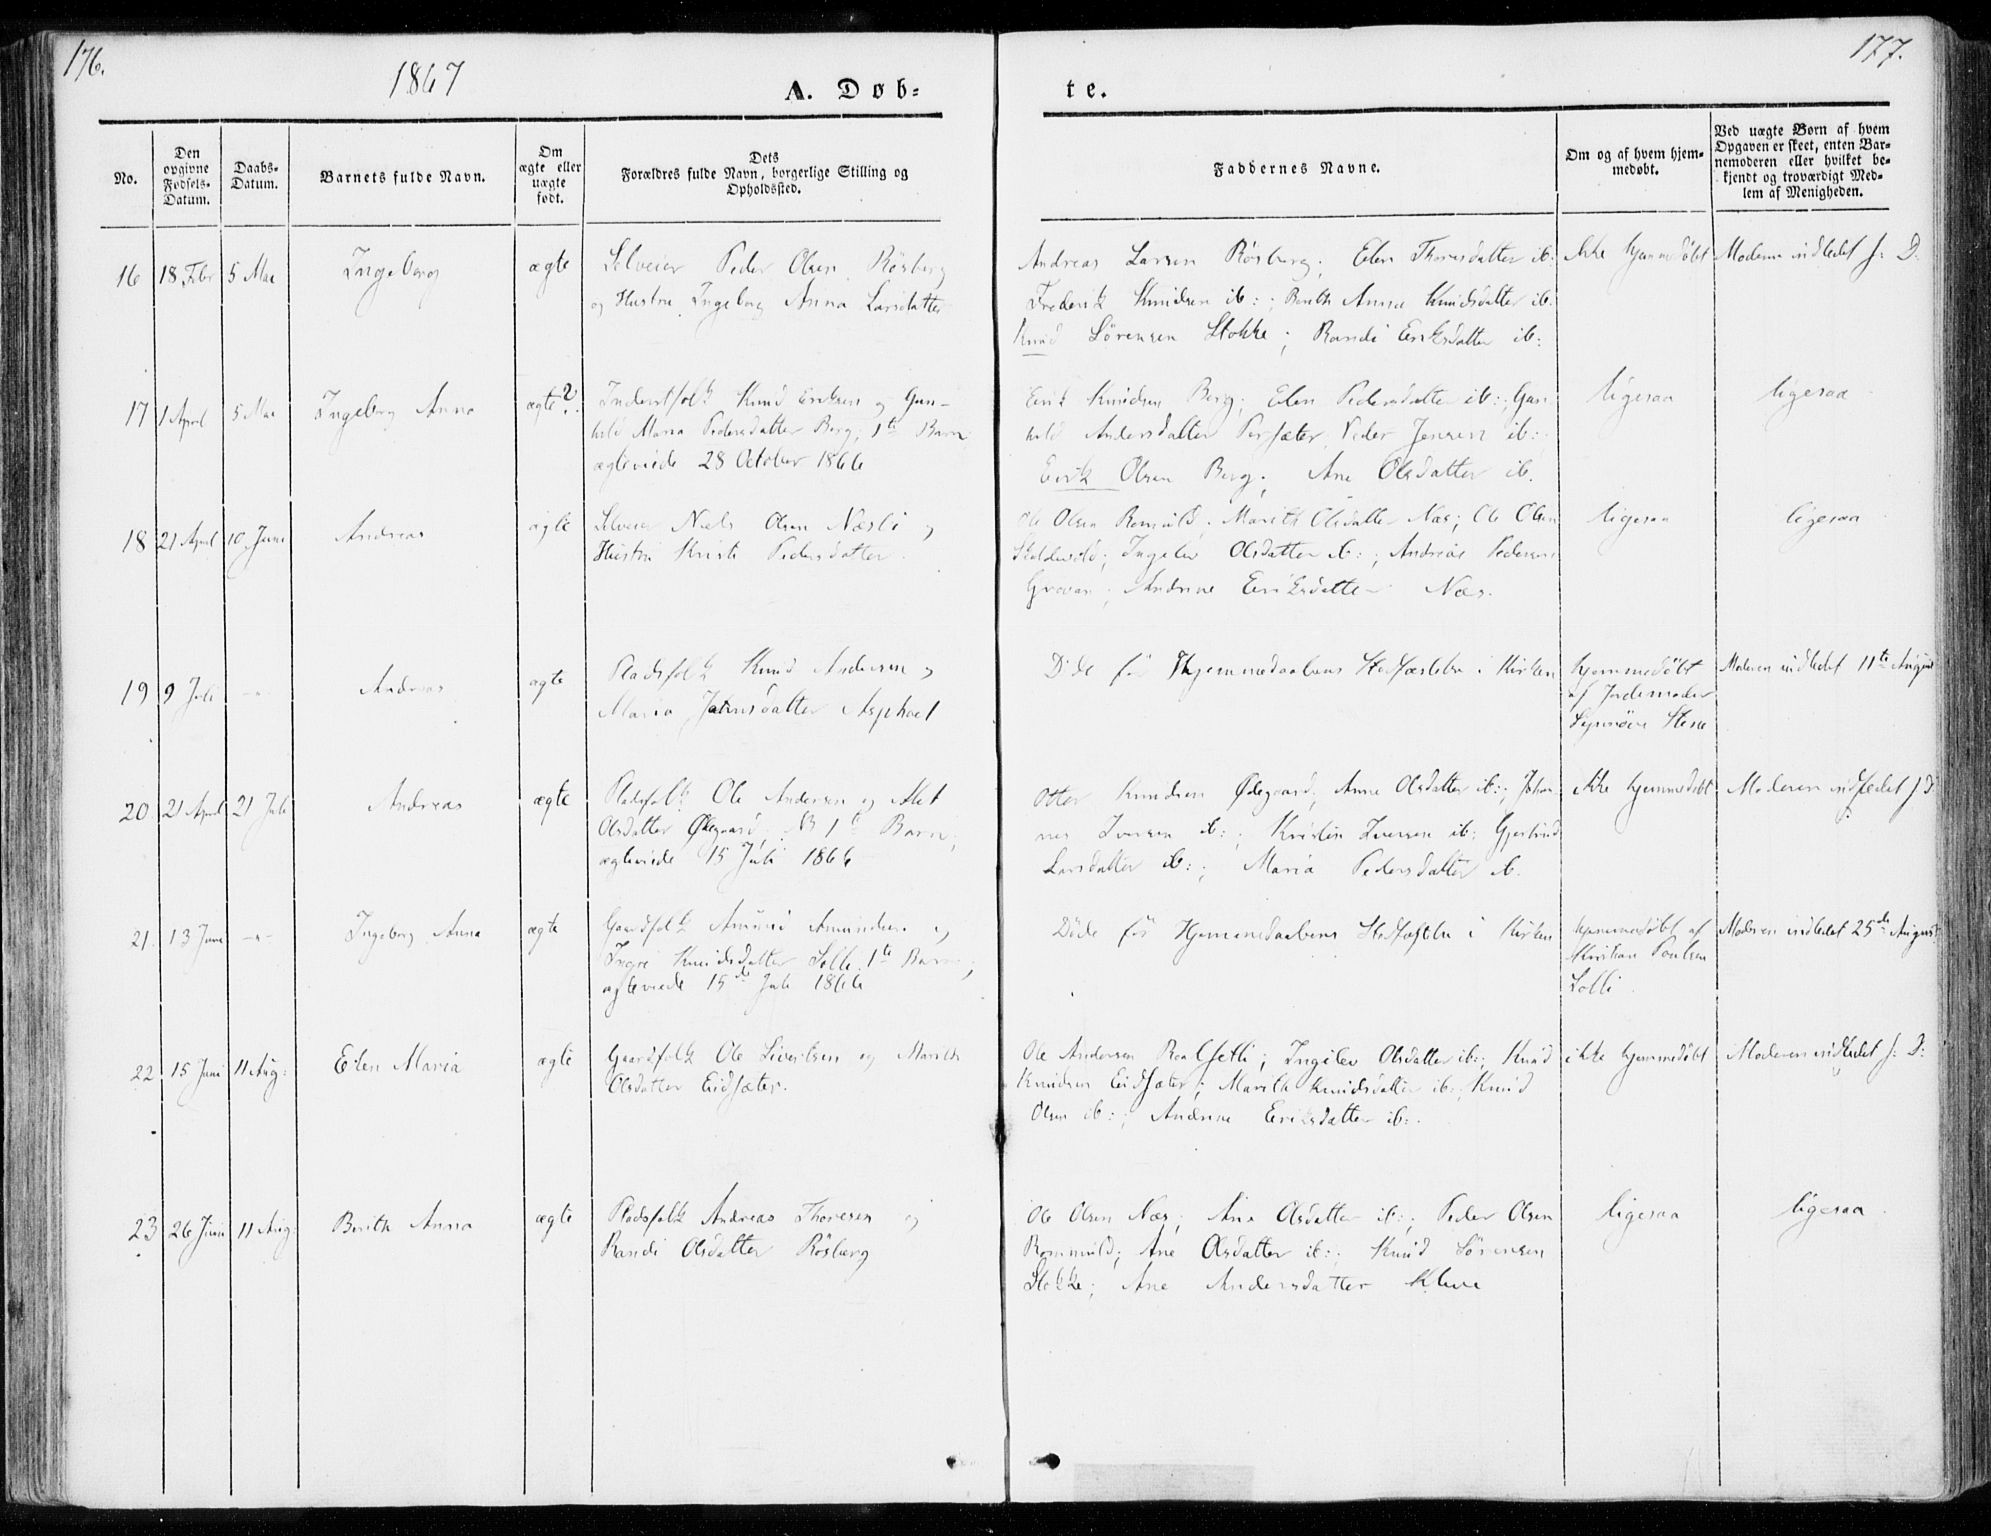 176.
177.
1867
A. Døb-
te.
No.
Den opgivne Fødsels-Datum.
Daabs-Datum.
Barnets fulde Navn.
Om ægte eller uægte født.
Dets
Forældres fulde Navn, borgerlige Stilling og
Opholdssted.
Faddernes Navne.
Om og af hvem hjem-
medøbt.
Ved uægte Børn af hvem
Opgaven er skeet, enten Bar-
nemoderen eller hvilket be-
kjendt og troværdigt Med-
lem af Menigheden.
16 18 Febr 5 Mai Ingeborg ægte Selveier Peder Olsen Rösberg
og Hustru Ingeborg Anna Larsdatter
Andreas Larsen Rösberg; Elen Thoresdatter ib:
Frederik Knudsen ib:; Berith Anna Knudsdatter ib:
Knud Sörensen Stokke; Randi Eriksdatter ib:
ikke hjemmedöbt
Moderen indledet s: D:
17 1 April 5 Mai Ingeborg Anna ægte? Inderstfolk Knud Eriksen og Gun-
hild Maria Pedersdatter Berg; 1te Barn
ægteviede 28 October 1866
Erik Knudsen Berg; Elen Pedersdatter ib:; Gun
hild Andersdatter Persæter, Peder Jensen ib:;
Eerik Olsen Berg; Ane Olsdatter ib.
ligesaa
ligesaa
18 21 April 10 Juni Andreas ægte Selveier Niels Olsen Næsli og
Hustru Kristi Pedersdatter.
Ole Olsen Romuld; Marith Olsdatter Næs; Ole Olsen
Ingelev Olsdatter ib:; Andreas Pedersen
Grovan; Andrine Eriksdatter Næs.
ligesaa
ligesaa
19 9 Juli -"- Andreas ægte Pladsfolk Knud Andersen og
Maria Johnsdatter Asphoel
Döde för Hjemmedaabens Stadfæstelse i Kirken
hjemmedöbt
af Jordemoder
Synnöve Stene
Moderen indledet 11te August
20 21 April 21 Juli Andreas ægte Pladsfolk Ole Andersen og Alet
Olsdatter Ødegaard; NB 1te Barn;
ægteviede 15 Juli 1866
Otter Knudsen Ødegaard; Anne Olsdatter ib:; Johan
nes Iversen ib:; Kristen Iversen ib: Gjertrud
Larsdatter ib:; Maria Pedersdatter ib.
ikke hjemmedöbt
Moderen indledet s: D
21. 13 Juni -"- Ingeborg Anna ægte Gaardfolk Amund Amundsen og
Ingri Knudsdatter Solli. 1te Barn;
ægteviede 15de Juli 1866
Döde för Hjemmedaabens Stadfæstelse i Kirken
hjemmedöbt af
Kristian Poulsen
Solli
Moderen indledet 25de August
22 15 Juni 11 Aug: Elen Maria ægte Gaardfolk Ole Sivertsen og Marith
Olsdatter Eidsæter.
Ole Andersen Roalsetli; Ingelev Olsdatter ib:; Knud
Knudsen Eidsæter; Marith Knudsdatter ib:; Knud
Olsen ib:; Andrine Eriksdatter ib:.
ikke hjemmedöbt
Moderen indledet s: D:
23 26 Juni 11 Aug: Berith Anna ægte Pladsfolk Andreas Thoresen og
Randi Olsdatter Rösberg
Ole Olsen Næs; Ane Olsdatter ib:; Peder Olsen
Rommuld; Ane Olsdatter ib:; Knud Sörensen
Stokke; Ane Andersdatter Kleve
ligesaa
ligesaa